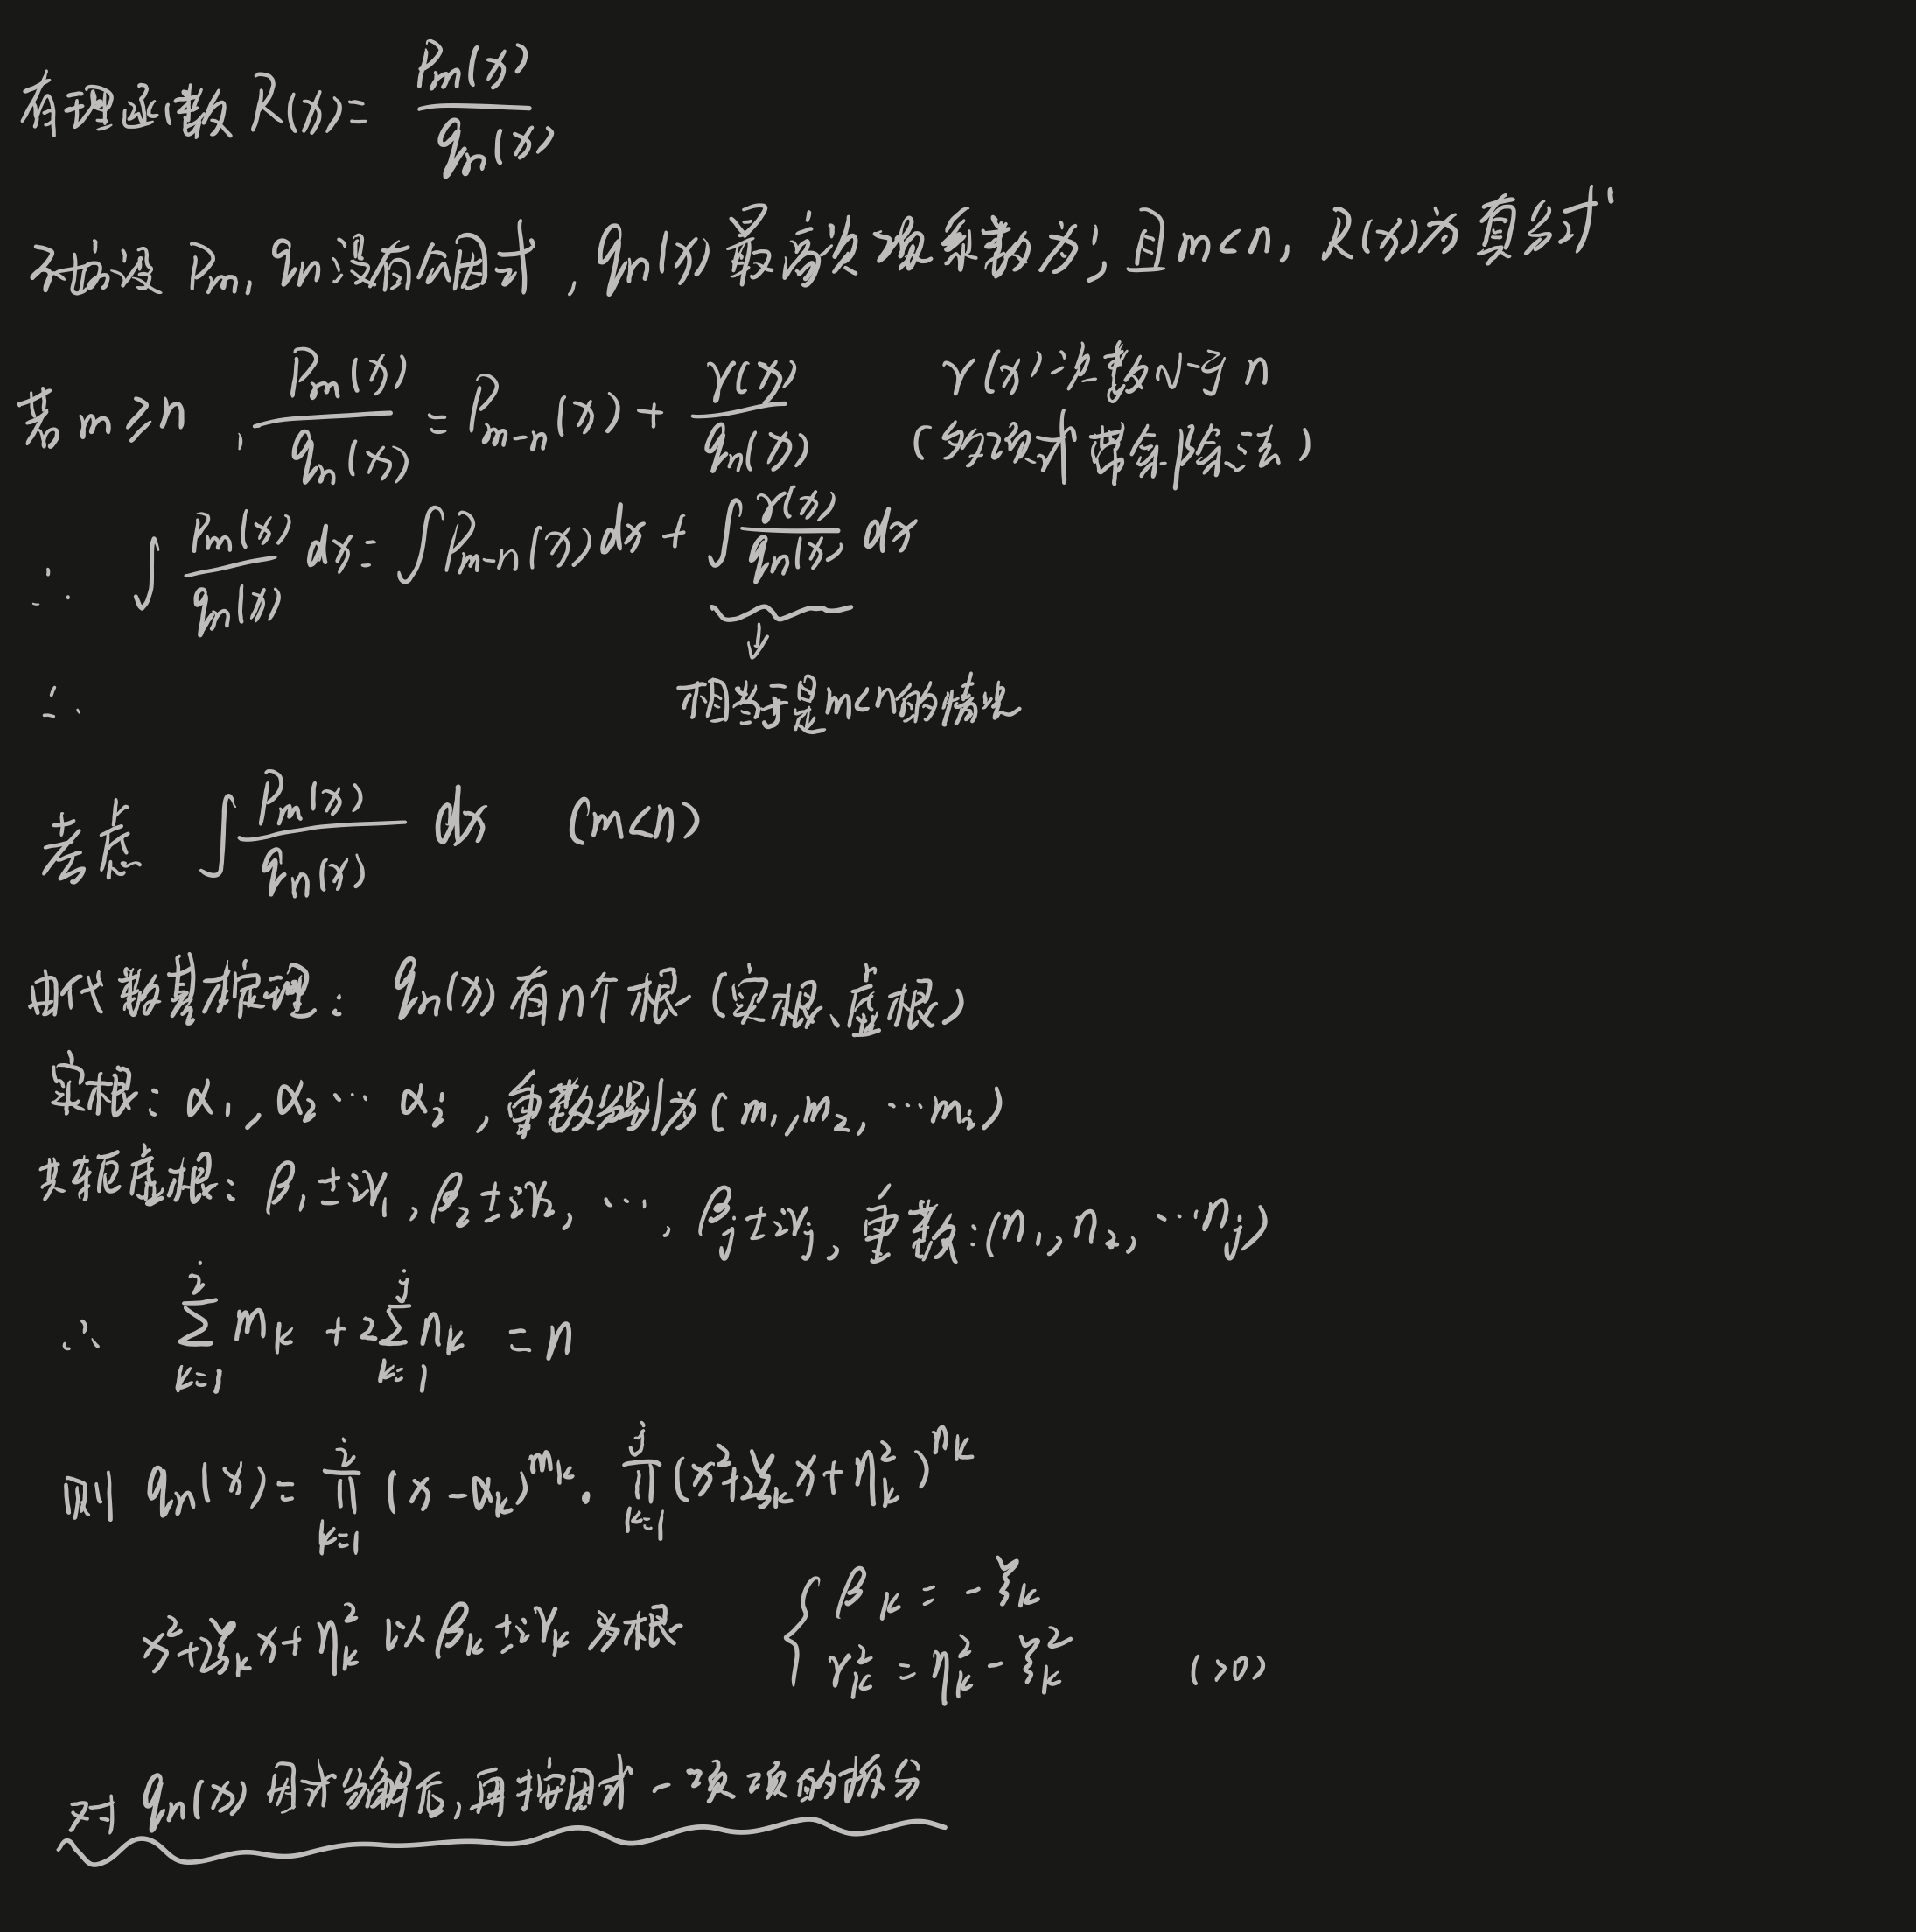 有理函数 R(x) = Pm(x) / qn(x)
不妨设 Pm, qn 没有公因式, qn(x) 最高次项系数为1, 且 m<n, R(x)为真分式
若 m ≥ n, Pm(x) / qn(x) = Pm-n(x) + r(x) / qn(x) r(x)次数小于 n
(多项式带余除法)
∴ ∫ Pm(x) / qn(x) dx = ∫ Pm-n(x) dx + ∫ r(x) / qn(x) dx
↓
∴ 相当于是m<n的情况
考虑 ∫ Pm(x) / qn(x) dx (m<n)
由代数基本定理: qn(x) 有 n个根 (实根、虚根)
实根: α₁, α₂ ⋯ αᵢ, 重数分别为 (m₁, m₂, ⋯ mᵢ)
共轭虚根: β₁ ± iγ₁, β₂ ± iγ₂, ⋯, βⱼ ± iγⱼ, 重数: (n₁, n₂, ⋯ nⱼ)
∴ ∑_{k=1}^{i} mₖ + 2∑_{k=1}^{j} nₖ = n
则 qn(x) = ∏_{k=1}^{i} (x - αₖ)^{mₖ} · ∏_{k=1}^{j} (x² + 2ξₖx + ηₖ²)^{nₖ}
x² + 2ξₖx + ηₖ² 以 βₖ ± iγₖ 为根 { βₖ = -ξₖ
γₖ² = ηₖ² - ξₖ² (>0)
对 qn(x) 因式分解后, 再按因式一项项的拆分